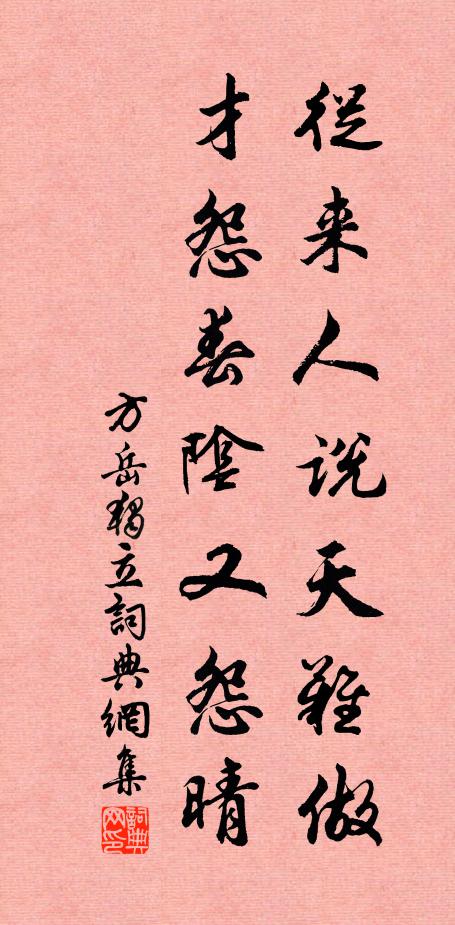 從来人説天難做
才怨春陰又怨晴
方岳獨立詞典網集
詞典网印